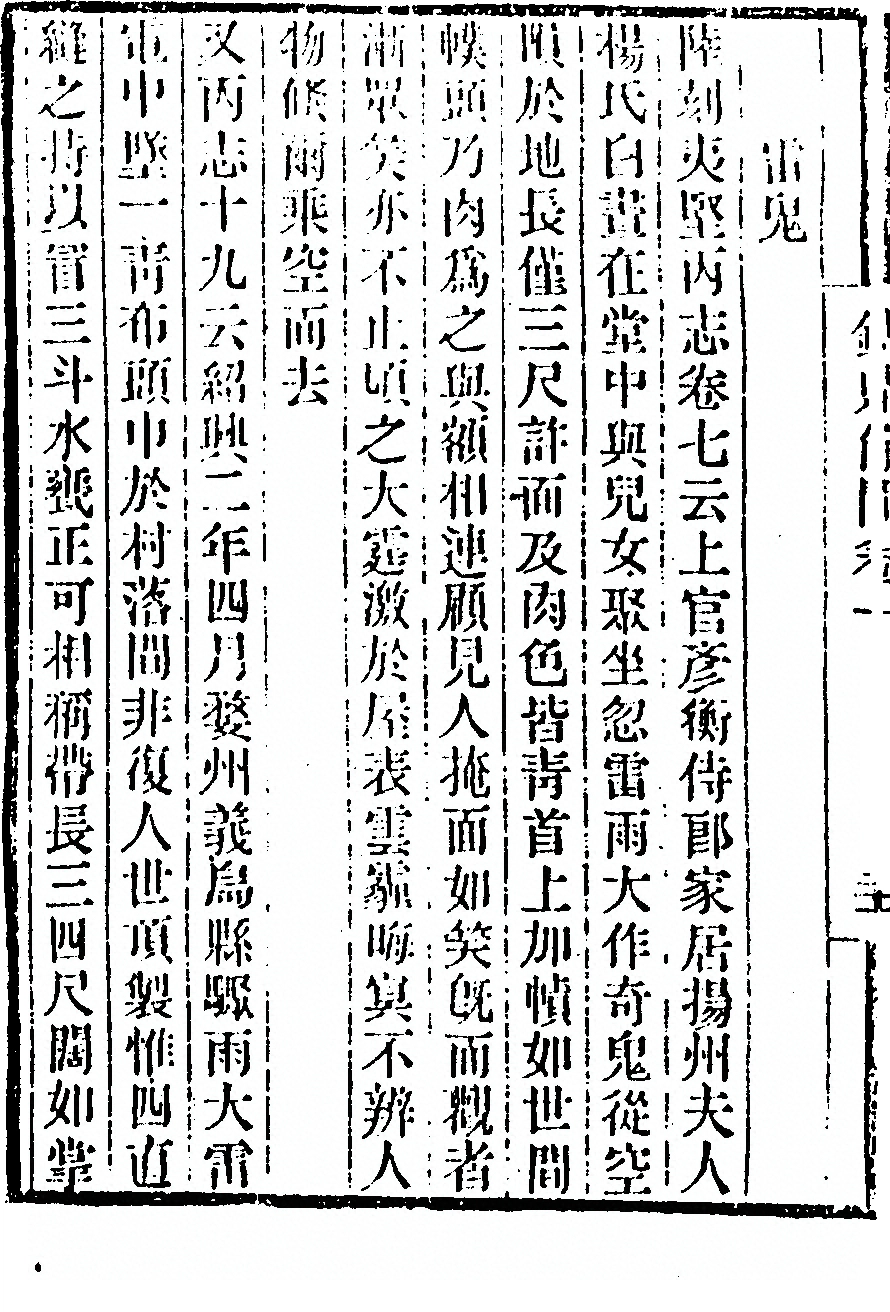 雷鬼
陸刻夷堅丙志卷七云上官彥衡侍郎家居揚州夫人
楊氏白晝在堂中與兒女聚坐忽雷雨大作奇鬼從空
隕於地長僅三尺許面及肉色皆靑首上加幘如世間
幞頭乃肉爲之與額相連顧見人掩面如笑旣而觀者
漸眾笑亦不止頃之大霆激於屋表雲霾晦冥不辨人
物倏爾乘空而去
又丙志十九云紹興二年四月婺州義烏縣驟雨大雷
電中墜一靑布頭巾於村落間非復人世頂製惟四直
縫之持以冒三斗水甕正可相稱帶長三四尺闊如掌